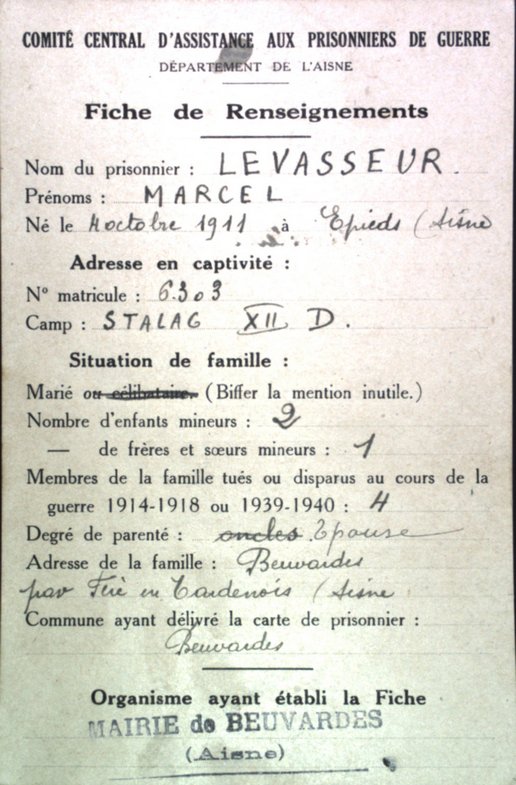 COMITÉ CENTRAL D'ASSISTANCE AUX PRISONNIERS DE GUERRE
DÉPARTEMENT DE L'AISNE
Fiche de Renseignements
Nom du prisonnier : LEVASSEUR.
Prénoms : MARCEL
Né le 4 octobre 1911 à Epieds (Aisne
Adresse en captivité :
N° matricule : 6303
Camp : STALAG XII D.
Situation de famille :
Marié ou célibataire. (Biffer la mention inutile.)
Nombre d'enfants mineurs : 2
— de frères et sœurs mineurs : 1
Membres de la famille tués ou disparus au cours de la
guerre 1914-1918 ou 1939-1940 : 4
Degré de parenté : oncles Epouse
Adresse de la famille : Beuvardes
par Fère en Tardenois (Aisne
Commune ayant délivré la carte de prisonnier :
Beuvardes
Organisme ayant établi la Fiche
MAIRIE de BEUVARDES
(Aisne)